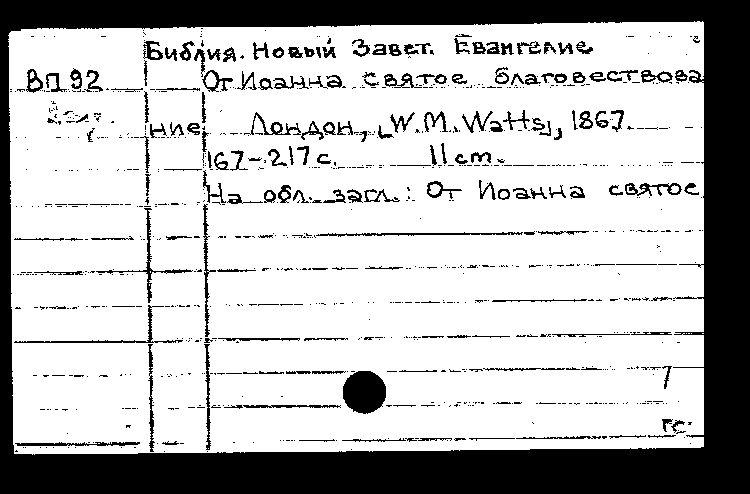 Библия. Новый Завет. Евангелие
ВП 92 От Иоанна святое благовествова
ние. Лондон, [W.M. Watts], 1867.
167-217 с. 11 cm.
На обл. загл.: От Иоанна святое
ГС.